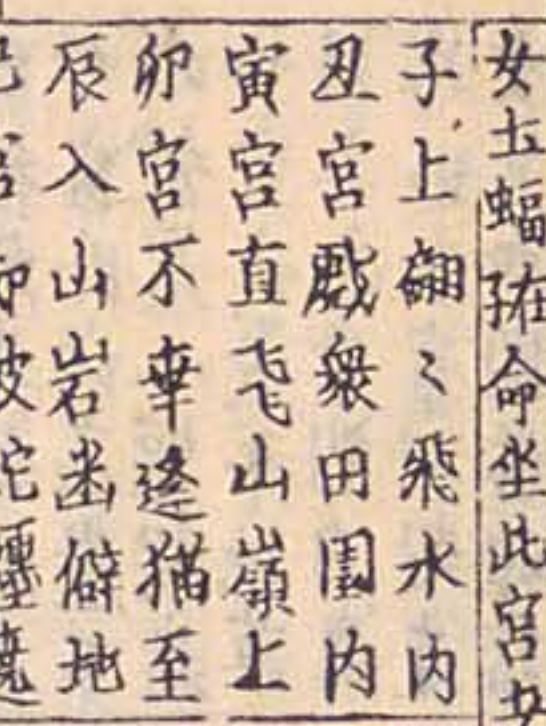 女土蝠在命坐此宮女
子上翩〻飛水内
丑宮戲衆田園内
寅宮直飞山嶺上
卯宮不幸逢猫至
辰入山岩幽僻地
巳宮却被蛇纒